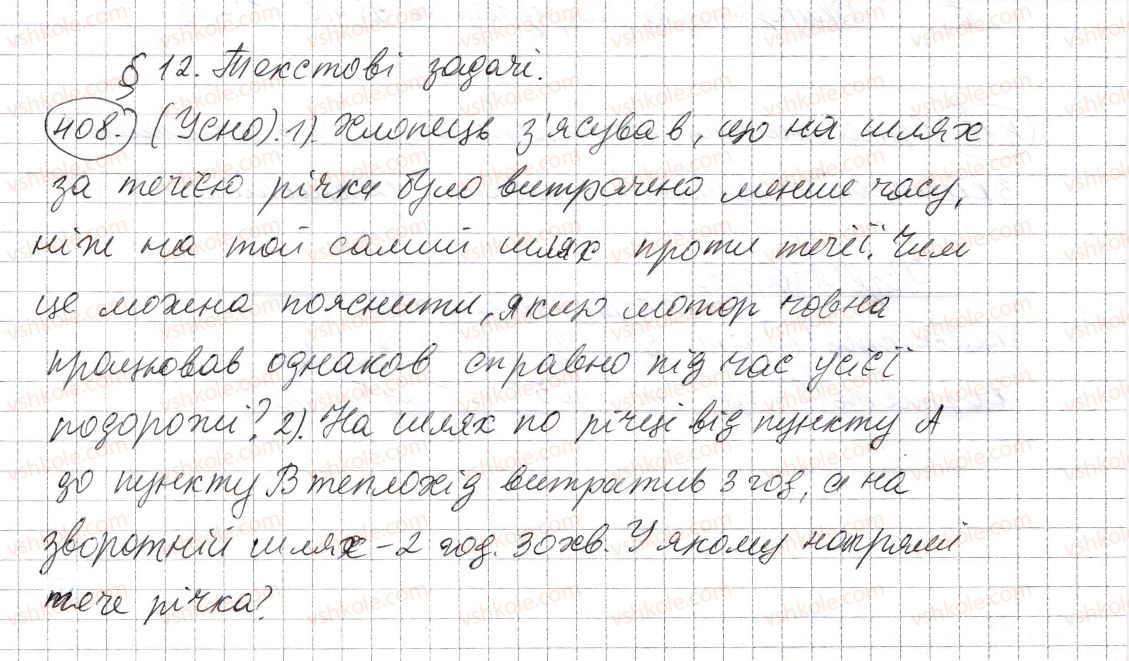 § 12. Текстові задачі.
408. (Усно). 1). Хлопець з'ясував, що на шлях
за течією річки було витрачено менше часу,
ніж на той самий шлях проти течії. Чим
це можна пояснити, якщо мотор човна
працював однаков справно під час усієї
подорожі? 2). На шлях по річці від пункту А
до пункту В теплохід витратив 3 год, а на
зворотній шлях - 2 год. 30 хв. У якому напрямі
тече річка?